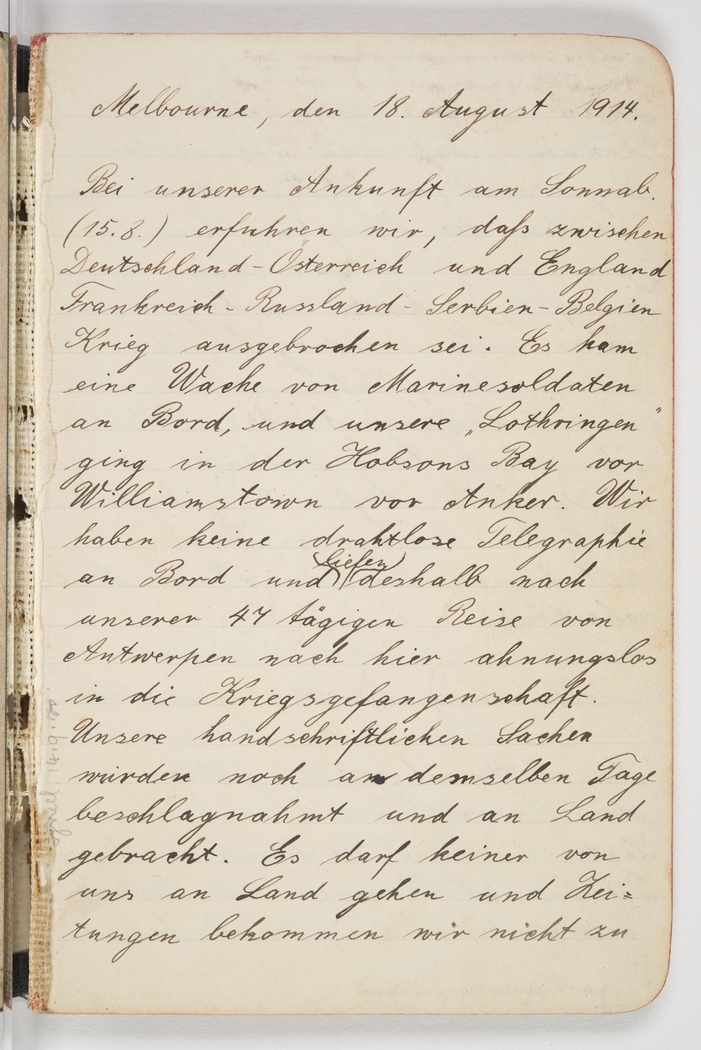 Melbourne, den 18. August 1914.
Bei unserer Ankunft am Sonnab.
(15.8.) erfuhren wir, daß zwischen
Deutschland-Österreich und England
Frankreich-Russland-Serbien-Belgien
Krieg ausgebrochen sei. Es kam
eine Wache von Marinesoldaten
an Bord, und unsere „Lothringen"
ging in der Hobsons Bay vor
Williamstown vor Anker. Wir
haben keine drahtlose Telegraphie
liefen
an Bord und deshalb nach
unserer 47 tägigen Reise von
Antwerpen nach hier ahnungslos
in die Kriegsgefangenschaft.
Unsere handschriftlichen Sachen
wurden noch an demselben Tage
beschlagnahmt und an Land
gebracht. Es darf keiner von
uns an Land gehen und Zei=
tungen bekommen wir nicht zu